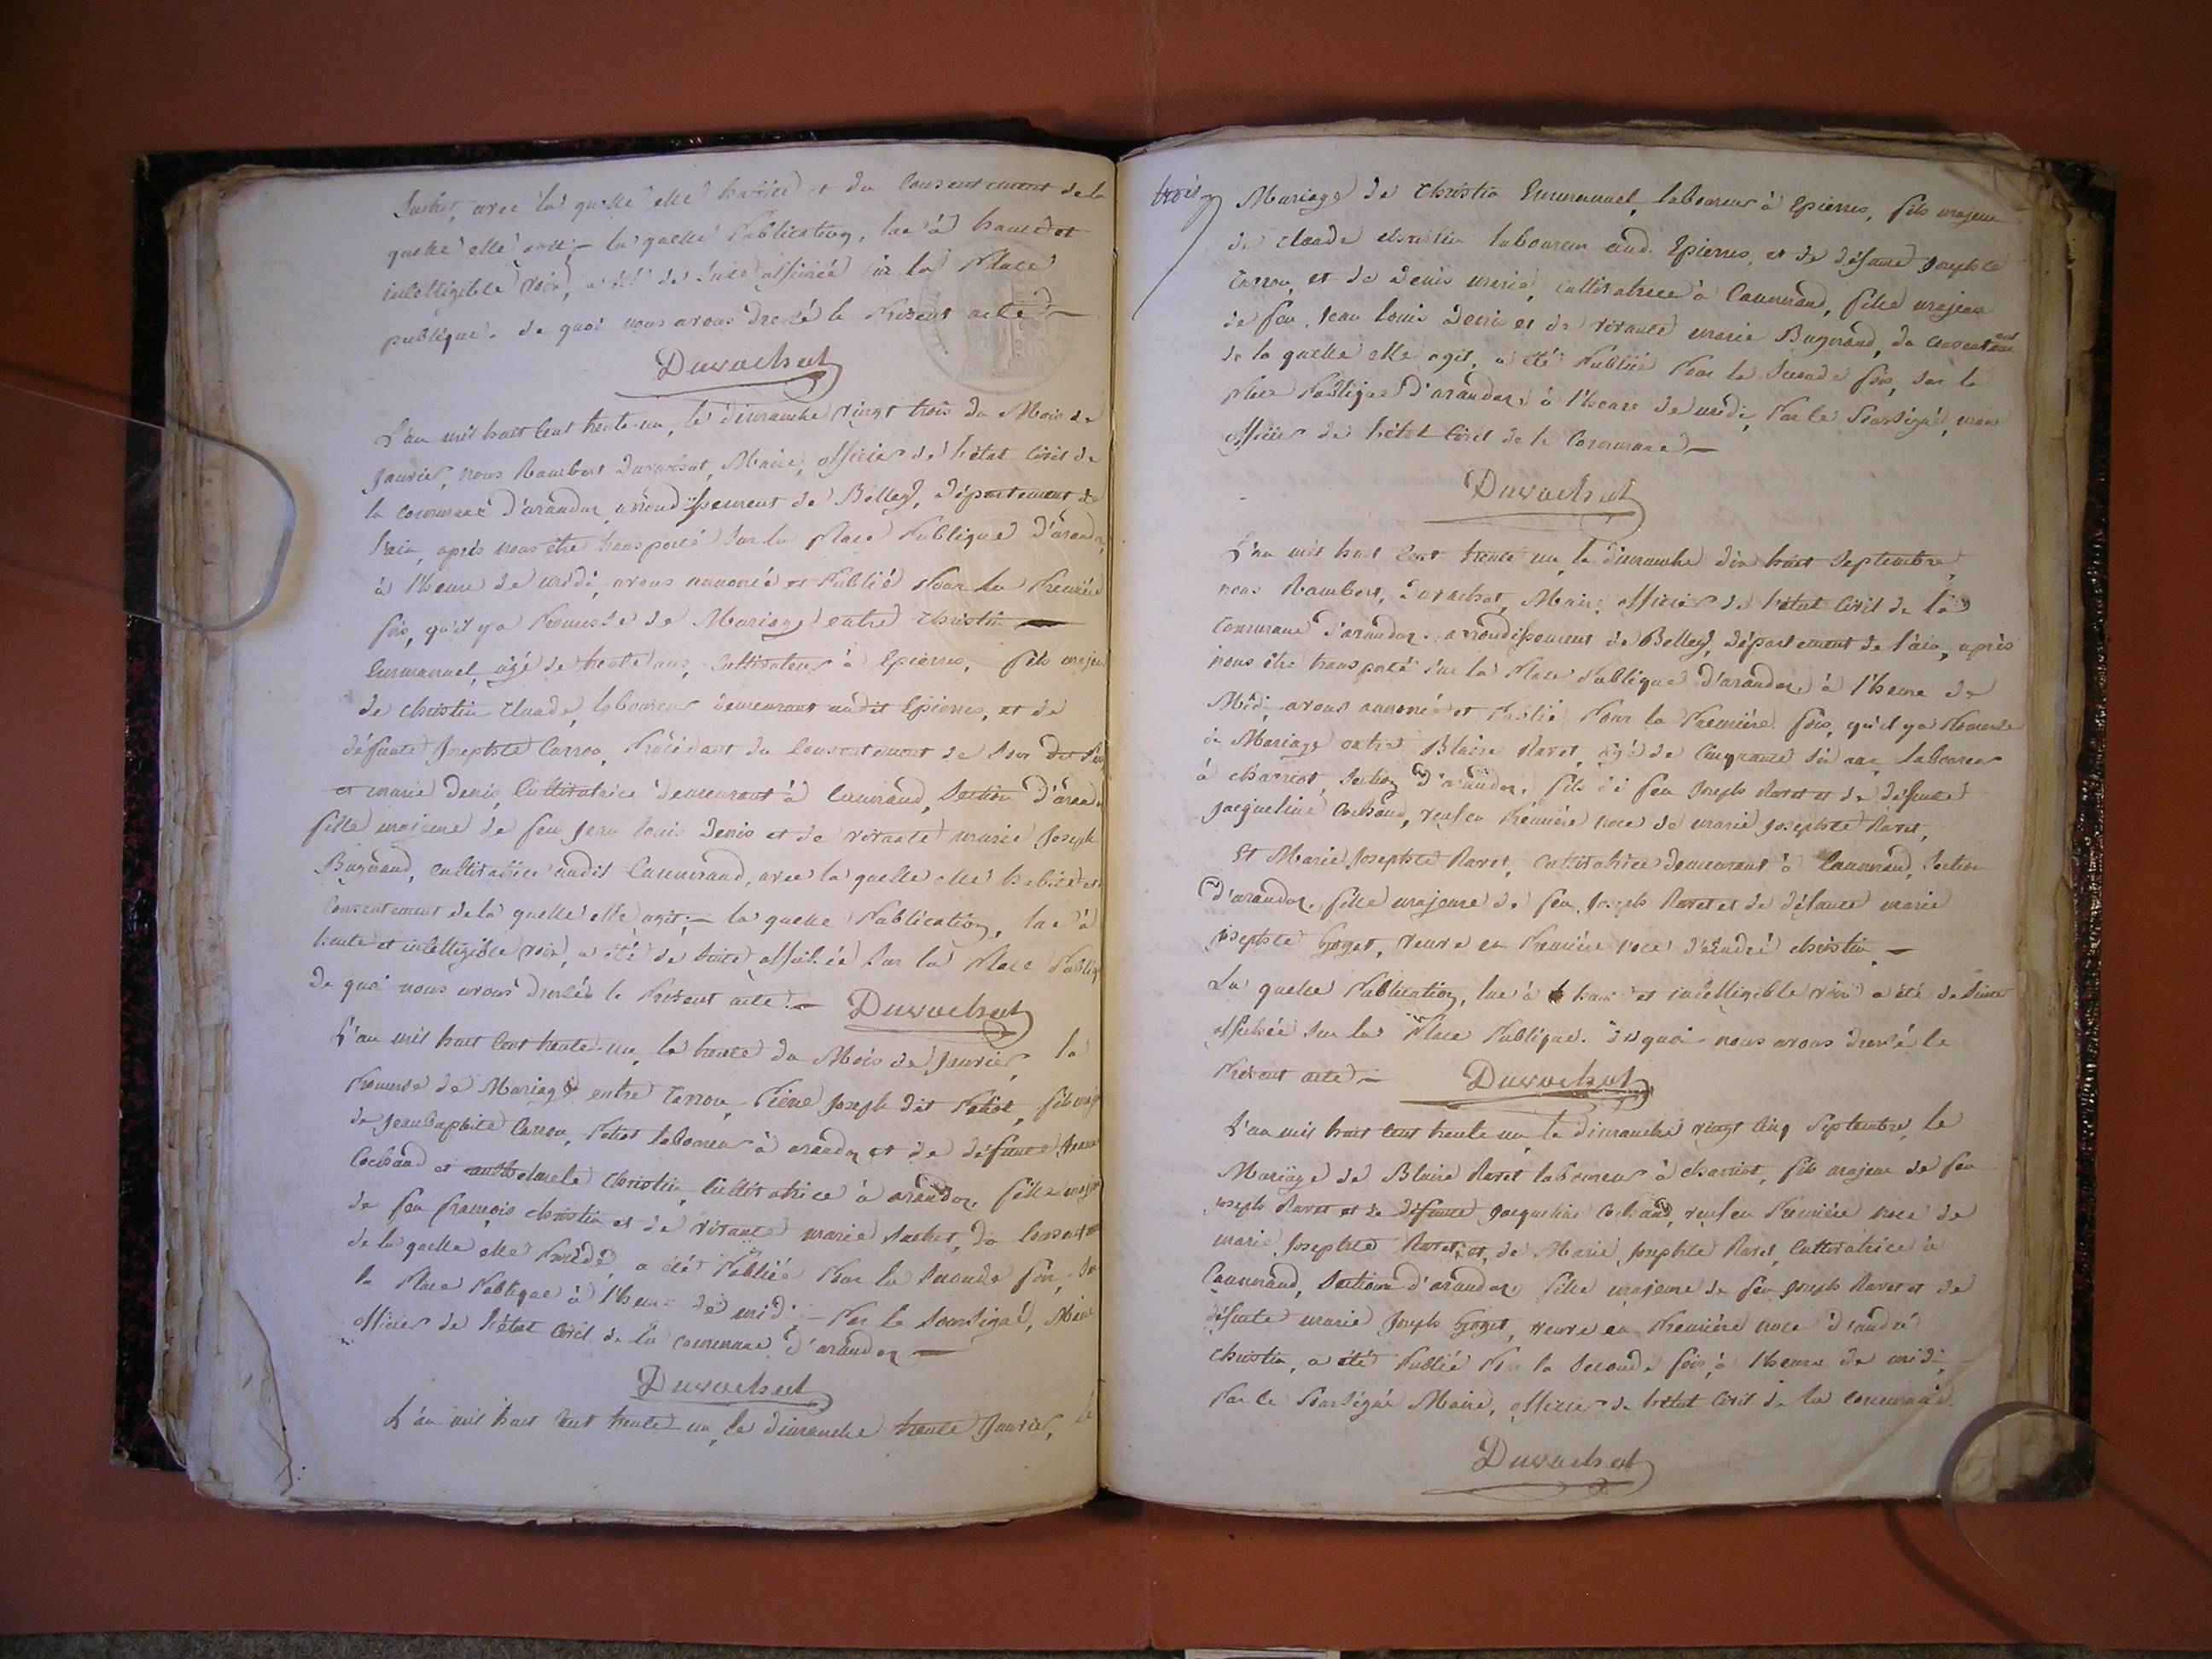 Suchet, avec la quelle elle habite et du Consentement de la
quelle elle agit; – la quelle Publication, lue à haute et
intelligible voix, a été de Suite affichée sur la Place
publique. de quoi nous avons dressé le Présent acte –
Duvachat
L'an mil huit Cent trente-un, le dimanche vingt trois du Mois de
Janvier, nous Rambert Duvachat, Maire, officier de l'état Civil de
la commune d'arandas, arrondissement de Belley, département de
l'ain, après nous être transporté sur la Place Publique d'arandas,
à l'heure de midi, avons annoncé et Publié Pour la Première
fois, qu'il y a Promesse de Mariage entre Christin
Emmanuel, âgé de trente ans, Cultivateur à Epierres, fils majeur
de christin Claude, laboureur demeurant audit Epierres, et de
défunte Josephte Carron, Procédant du Consentement de Son dit Père
et marie Denis, Cultivatrice demeurant à Caumrand, Section d'arandas
fille majeure de feu Jean louis Denis et de vivante marie Joseph
Bugnand, Cultivatrice audit Caumrand, avec la quelle elle habite et
Consentement de la quelle elle agit; – la quelle Publication, lue à
haute et intelligible voix, a été de Suite affichée Sur la Place Publique
de quoi nous avons dressé le Présent acte. – Duvachat
L'an mil huit Cent trente-un, le trente du Mois de Janvier, la
Promesse de Mariage entre Carron, Pierre Joseph dit Patiot, fils majeur
de Jean baptiste Carron, Patiot laboureur à arandas et de défunte
Cochand et Christin, Cultivatrice à arandas, fille majeure
de feu françois christin et de vivante marie Suchet, du Consentement
de la quelle elle Procède, a été Publiée Pour la Seconde fois, Sur
la Place Publique à l'heure de midi – Par le Soussigné, Maire
officier de l'état Civil de la commune d'arandas –
Duvachat
L'an mil huit Cent trente-un, le dimanche trente Janvier, le
trois
Mariage de Christin Emmanuel, laboureur à Epierres, fils majeur
de claude christin laboureur aud. Epierres, et de défunte Josephte
Carron, et de Denis marie, cultivatrice à Caumrand, fille majeure
de feu Jean louis Denis et de vivante marie Bugnand, du consentement
de la quelle elle agit, a été Publié Pour la Seconde fois, sur la
Place Publique d'arandas, à l'heure de midi, Par le Soussigné, maire
officier de l'état Civil de la Commune –
Duvachat
L'an mil huit Cent trente un, le dimanche dix huit Septembre,
nous Rambert, Duvachat, Maire, officier de l'état Civil de la
Commune d'arandas, arrondissement de Belley, département de l'ain, après
nous être transporté sur la Place Publique d'arandas, à l'heure de
Midi, avons annoncé et Publié Pour la Première fois, qu'il y a Promesse
de Mariage entre Blaise Ravet, âgé de Cinquante six ans, laboureur
à charriot, Section d'arandas, fils de feu Joseph Ravet et de défunte
Jacqueline Cochand, veuf en Première noce de marie Josephte Ravet,
Et Marie Josephte Ravet, Cultivatrice demeurant à Caumrand, Section
d'arandas, fille majeure de feu Joseph Ravet et de défunte marie
josephte Goget, veuve en Première noce d'andré christin –
La quelle Publication, lue à haute et intelligible voix a été de Suite
affichée sur la Place Publique. de quoi nous avons dressé le
Présent acte – Duvachat
L'an mil huit Cent trente un le dimanche vingt Cinq Septembre, le
Mariage de Blaise Ravet laboureur à charriot, fils majeur de feu
Joseph Ravet et de défunte Jacqueline Cochand, veuf en Première noce de
marie Josephte Ravet; et, de Marie Josephte Ravet, Cultivatrice à
Caumrand, Section d'arandas, fille majeure de feu Joseph Ravet et de
défunte marie Joseph Goget, veuve en Première noce d'andré
Christin, a été Publié Pour la Seconde fois, à l'heure de midi,
Par le Soussigné Maire, officier de l'état Civil de la Commune.
Duvachat